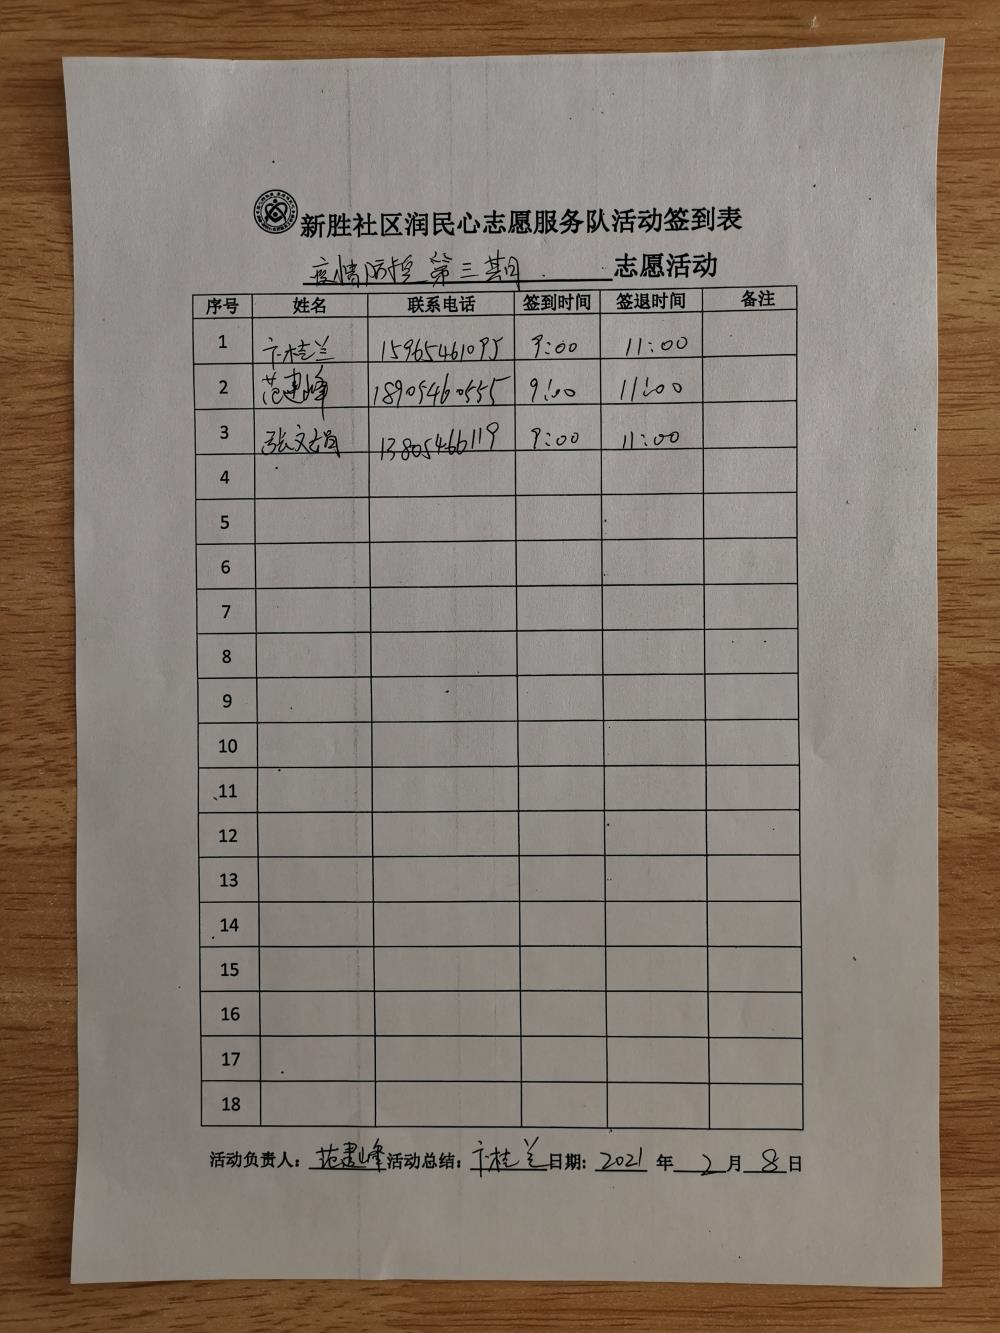 新胜社区润民心志愿服务队活动签到表
疫情防控第三期 志愿活动
序号 姓名 联系电话 签到时间 签退时间 备注
1 卞桂兰 15965461095 9:00 11:00
2 范建峰 18905460555 9:00 11:00
3 张文昌 13805466119 9:00 11:00
4
5
6
7
8
9
10
11
12
13
14
15
16
17
18
活动负责人：范建峰 活动总结：卞桂兰 日期：2021 年 2 月 8 日